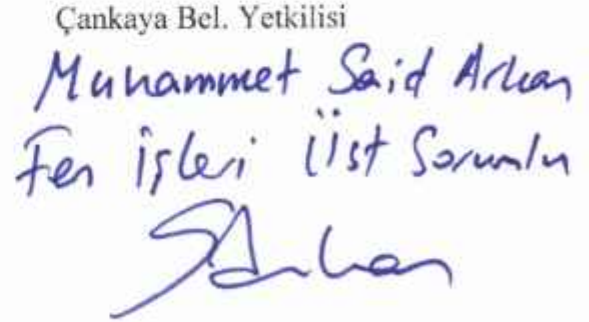 Çankaya Bel. Yetkilisi
Muhammet Said Arkan
Fen İşleri Üst Sorumlu
SArkan